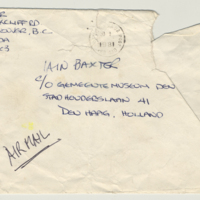 OUVER, B.C.
IAIN BAXTER
C/O GEMEENTEMUSEUM DEN
STADHOUDERSLAAN 41
DEN HAAG, HOLLAND
AIR MAIL